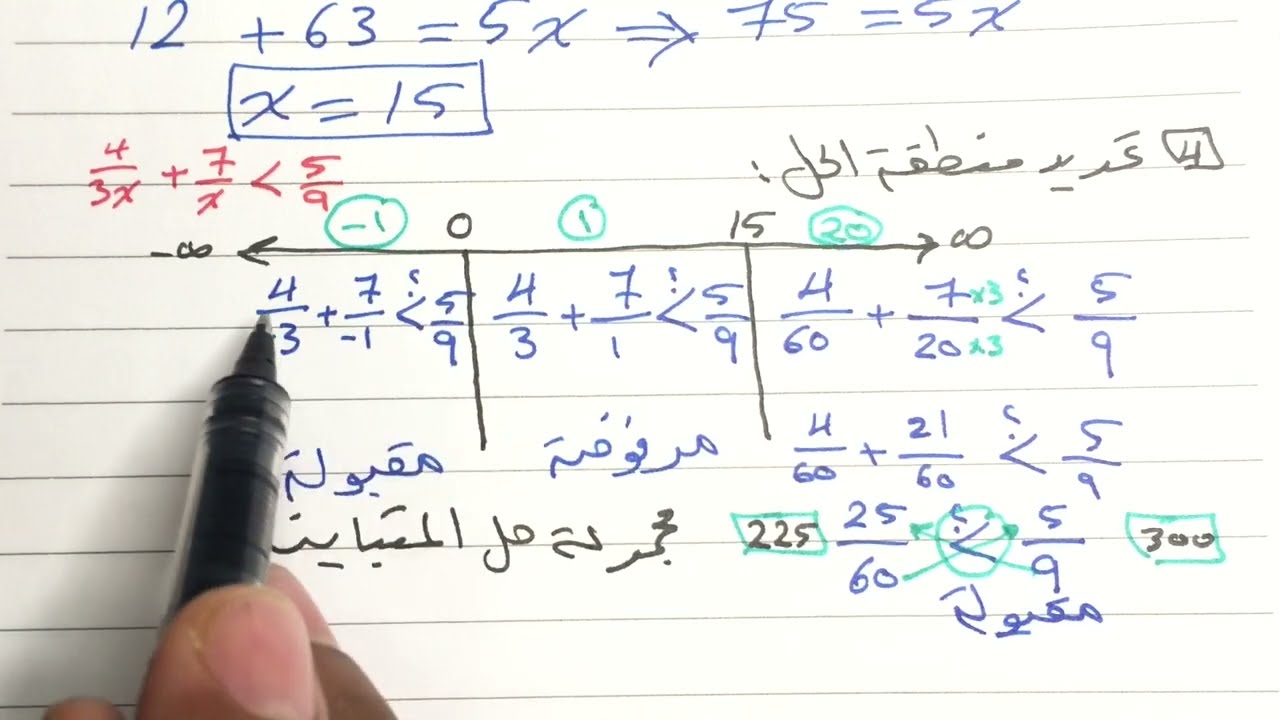 12 + 63 = 5x ⇒ 75 = 5x
x = 15
4 تحديد منطقة الحل :
4/3x + 7/x < 5/9
-∞ -1 0 1 15 20 ∞
4/-3 + 7/-1 <؟ 5/9
4/3 + 7/1 <؟ 5/9
4/60 + 7×3/20×3 <؟ 5/9
4/60 + 21/60 <؟ 5/9
مقبولة
مرفوضة
225 25/60 <؟ 5/9 300
مقبولة
مجموعة حل المتباينة